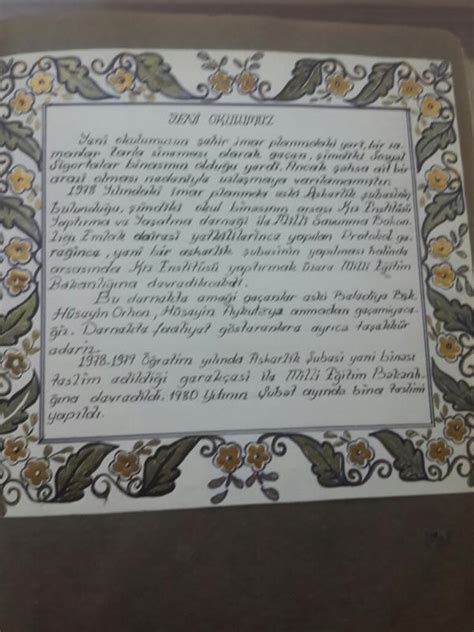 YENİ OKULUMUZ
Yeni okulumuzun şehir imar planındaki yeri, bir za-
manlar tarla sineması olarak geçen, şimdiki Sosyal
Sigortalar binasının olduğu yerdi. Ancak şahsa ait bir
arazi olması nedeniyle anlaşmaya varılamamıştır.
1978 Yılındaki imar planında eski Askerlik şubesinin
bulunduğu, şimdiki okul binasının arsası Kız Enstitüsü
Yaptırma ve Yaşatma derneği ile Milli Savunma Bakan-
lığı Emlak dairesi yetkililerince yapılan Protokol ge-
reğince, yeni bir askerlik şubesinin yapılması halinde
arsasında Kız Enstitüsü yaptırmak üzere Milli Eğitim
Bakanlığına devredilecekti.
Bu dernekte emeği geçenler eski Belediye Bşk.
Hüseyin Orhon, Hüseyin Aykut'u anmadan geçemiyece-
ğiz. Dernekte faaliyet gösterenlere ayrıca teşekkür
ederiz.
1978-1979 Öğretim yılında Askerlik Şubesi yeni binası
teslim edildiği gerekçesi ile Milli Eğitim Bakanlı-
ğına devredildi. 1980 Yılının Şubat ayında bina teslimi
yapıldı.